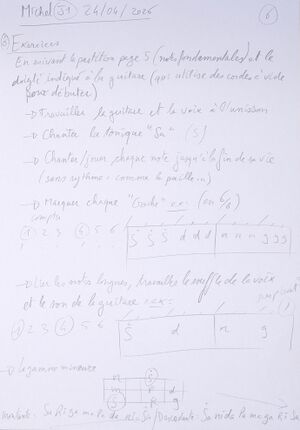 Michel J1 24/04/2026 6
③ Exercices
En suivant la partition page 5 (notes fondamentales) et le
doigté indiqué à la guitare (qui utilise des cordes à vide
pour débuter)
→ Travailler la guitare et la voix à l'unisson
→ Chanter la tonique "Sa" (S)
→ Chanter/jouer chaque note jusqu'à la fin de sa vie
(sans rythme: comme le
→ Marquer chaque ex: (en 6/8)
compter
① 2 3 ④ 5 6 Ṡ Ṡ Ṡ d d d n n n g g g
→ les notes longues, travailler le souffle de la voix
et le son de la guitare ex:
① 2 3 ④ 5 6 Ṡ d n g
→ La gamme mineure
n d
m
S R
Sa Ri ga ma Pa da ni Sa / Descendante: Sa ni da Pa ma ga Ri Sa